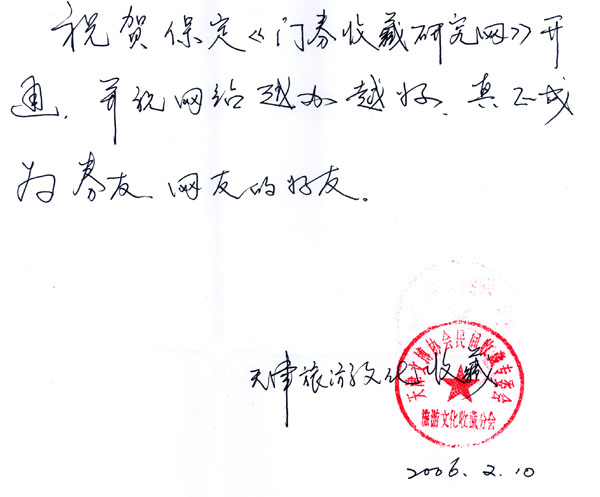 祝贺保定《门券收藏研究网》开
通，并祝网站越办越好，真正成
为券友、网友的好友。
天津旅游文化收藏
天津文博协会民间收藏专委会
旅游文化收藏分会
2006.2.10